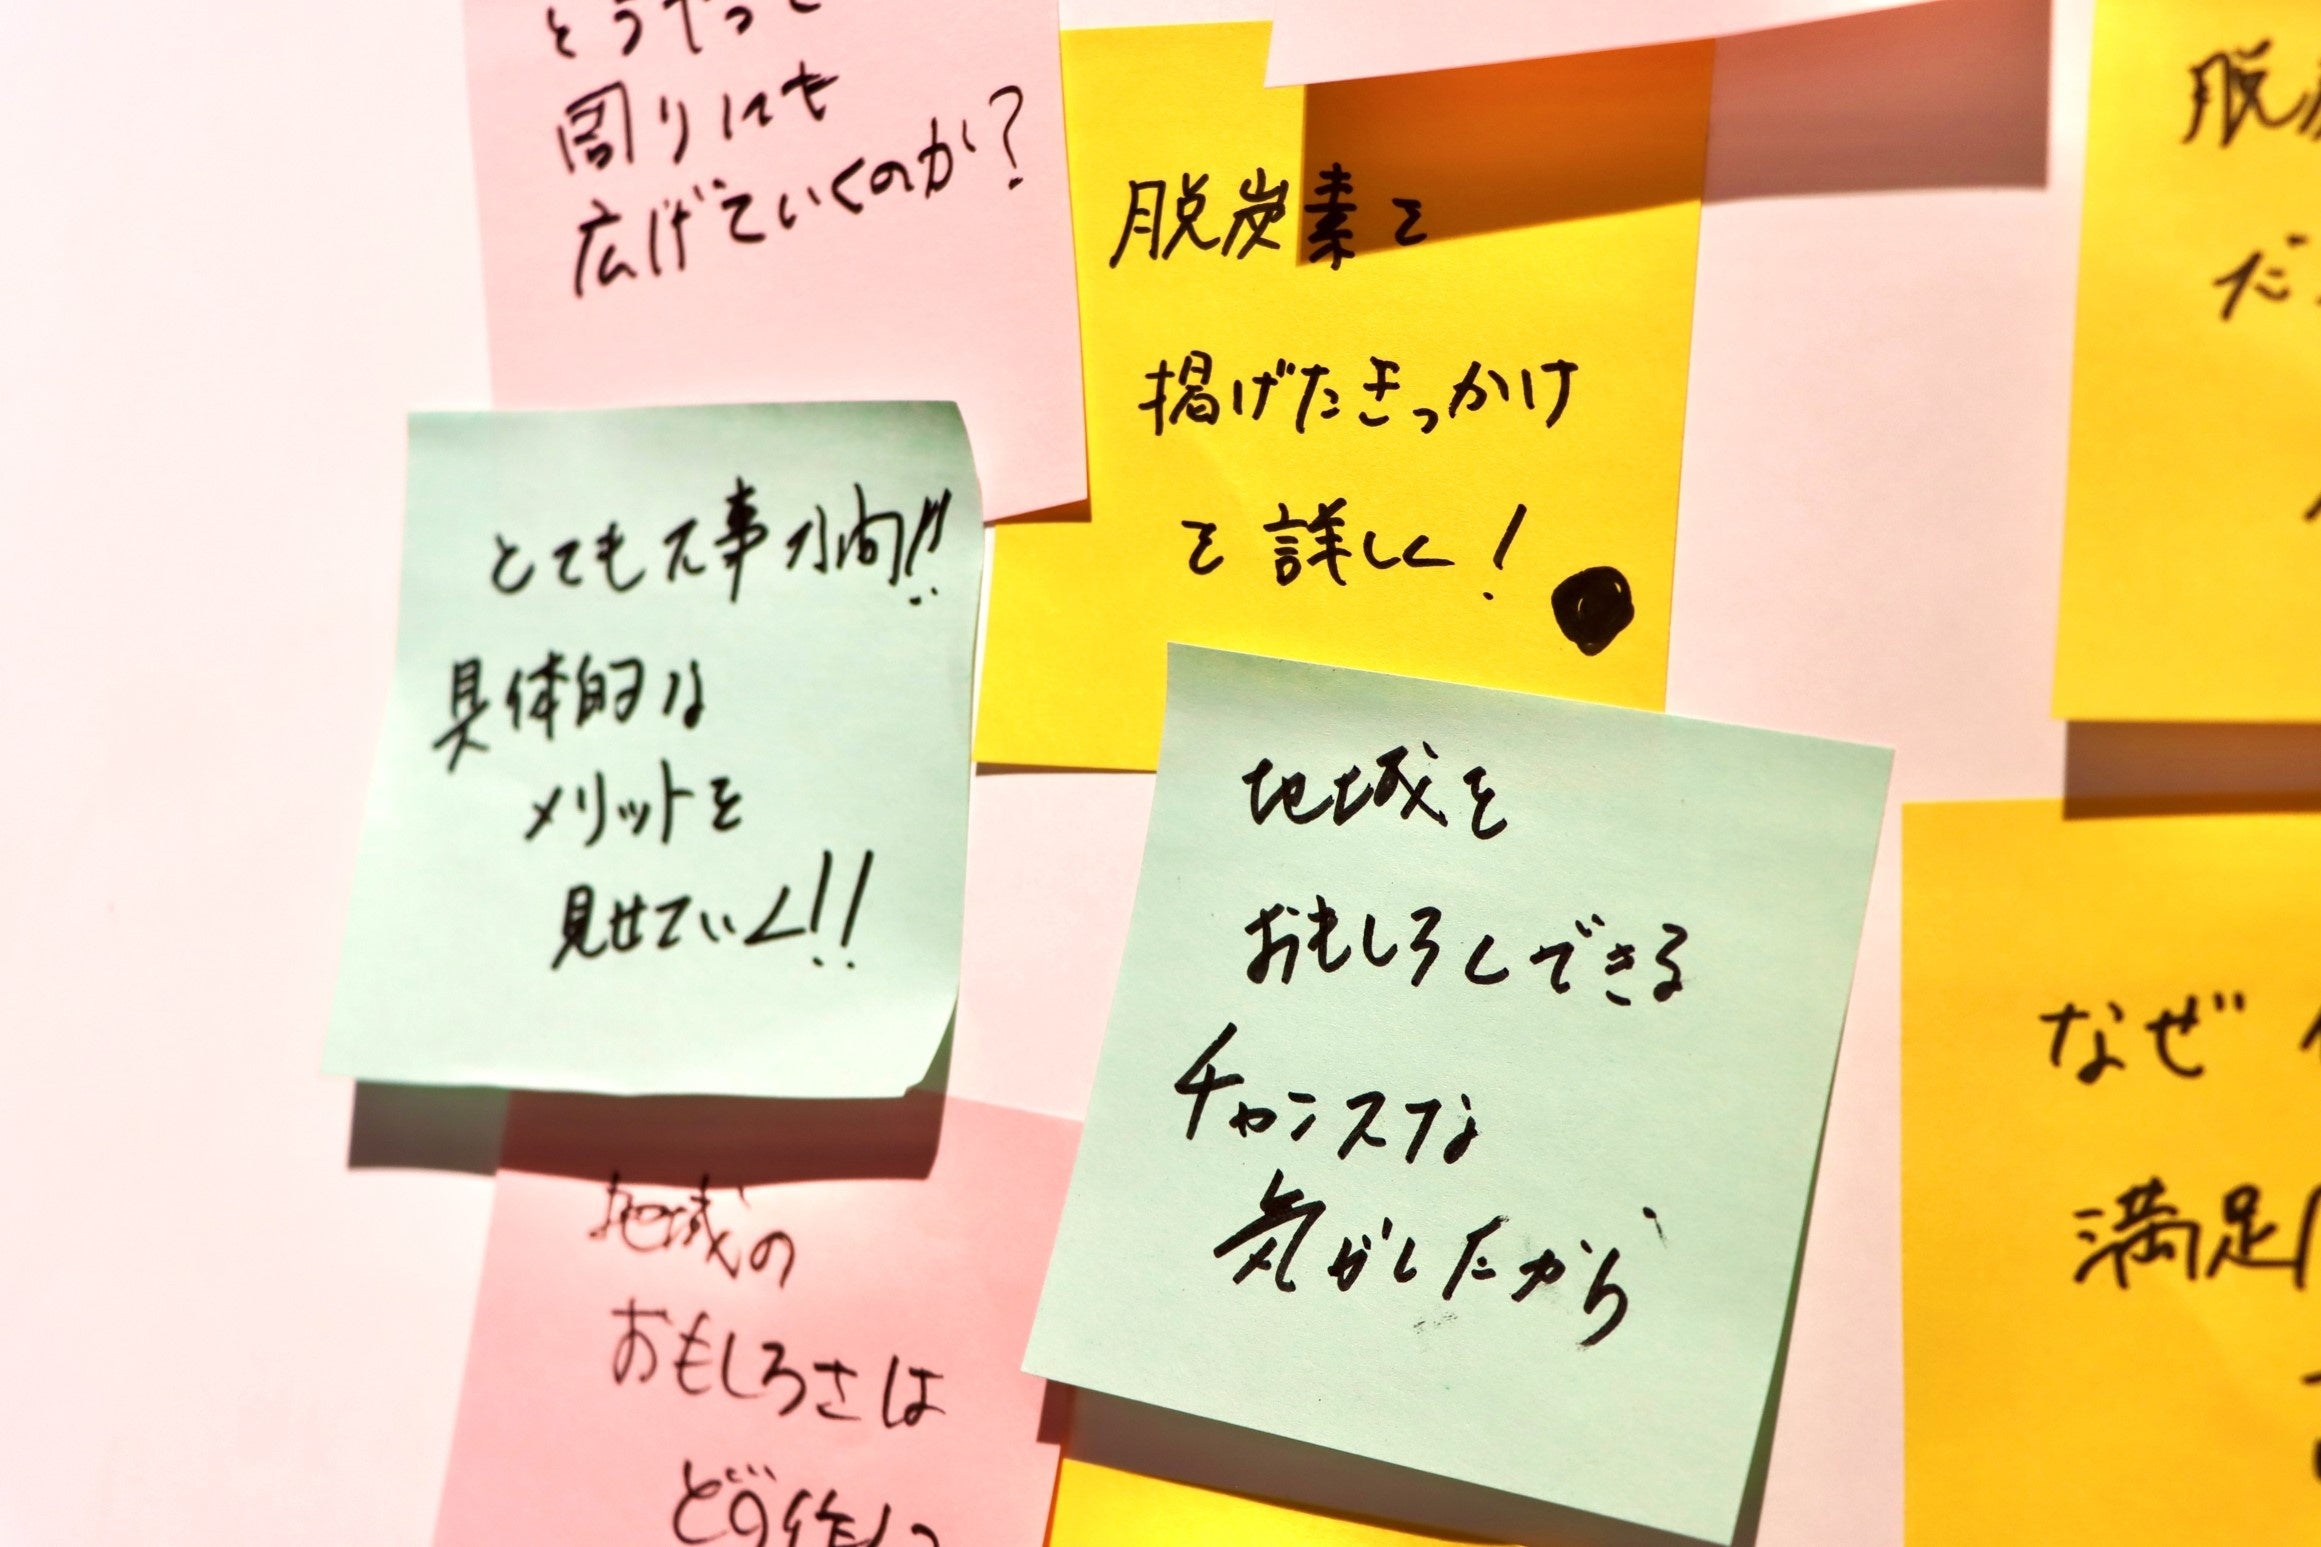 どうやって
周りにも
広げていくのか?
脱炭素を
掲げたきっかけ
を詳しく!
脱
だ
とても大事な問!!
具体的な
メリットを
見せていく!!
地域を
おもしろくできる
チャンスな
気がしたから
なぜ
満足
地域の
おもしろさは
どう作